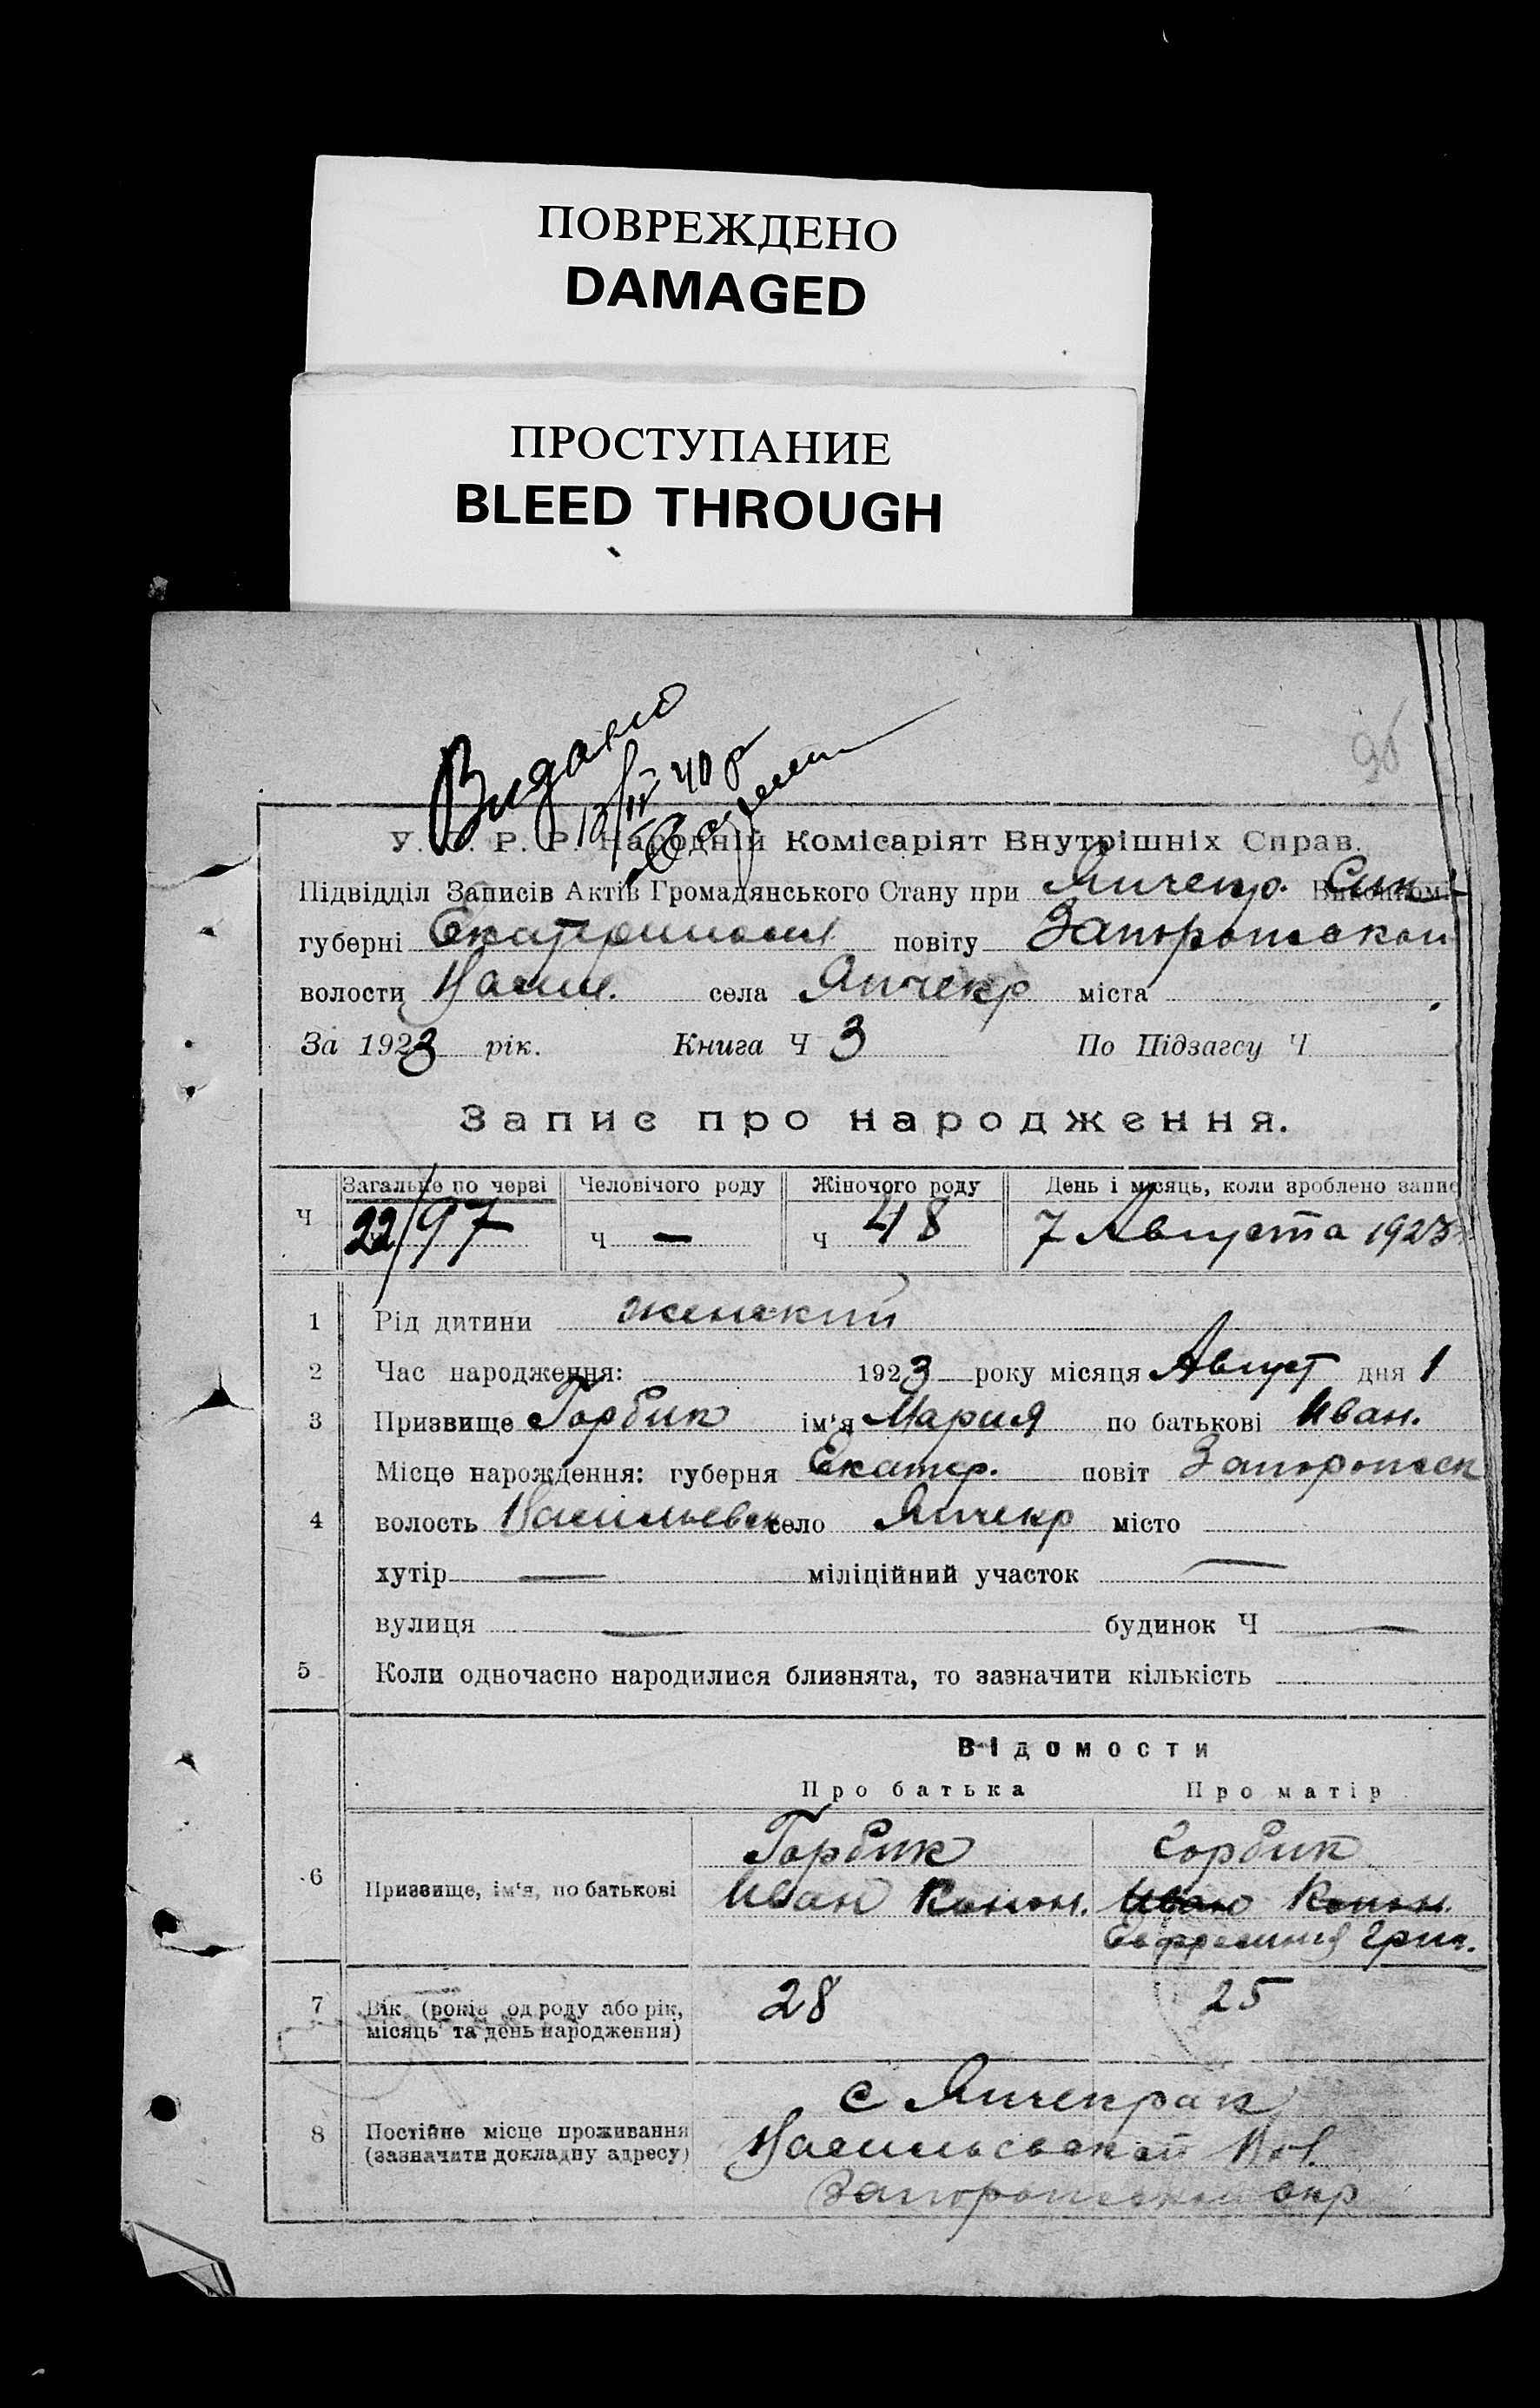 ПОВРЕЖДЕНО
DAMAGED
ПРОСТУПАНИЕ
BLEED THROUGH
Видано
10/IV 40 р
96
У. С. Р. Р. Народній Комісаріят Внутрішніх Справ.
Підвідділ Записів Актів Громадянського Стану при Янчекр. Виконком
губерні Екатеринослав повіту Запорожской
волости Васил. села Янчекр міста
За 1923 рік. Книга Ч 3 По Підзагсу Ч
Запис про народження.
Загальне по черзі Человічого роду Жіночого роду День і місяць, коли зроблено запис
Ч 22/97 ч — ч 48 7 Августа 1923
1 Рід дитини женский
2 Час народження: 1923 року місяця Август дня 1
3 Призвище Горбик ім'я Мария по батькові Иван.
Місце нарождення: губерня Екатер. повіт Запорожск
4 волость Васильевск село Янчекр місто
хутір — міліційний участок —
вулиця — будинок Ч —
5 Коли одночасно народилися близнята, то зазначити кількість
Відомости
Про батька Про матір
Горбик Горбик
6 Призвище, ім'я, по батькові Иван Конон. Иван Конон.
Евфросиния Григ.
7 Вік (років од роду або рік, 28 25
місяць та день народження)
с Янчекрак
8 Постійне місце проживання Васильевской Вол.
(зазначити докладну адресу)
Запорожской окр